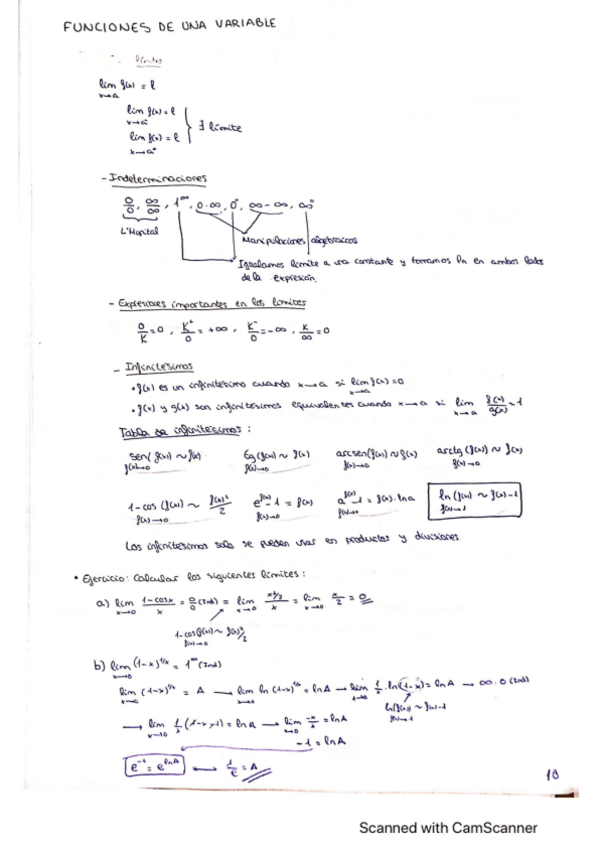 FUNCIONES DE UNA VARIABLE
límites
lim f(x) = l
x→a
lim f(x) = l
x→a⁻
lim f(x) = l
x→a⁺
∃ límite
- Indeterminaciones
0/0, ∞/∞, 1^∞, 0·∞, 0⁰, ∞-∞, ∞⁰
L'Hopital
Manipulaciones algebraicas
Igualamos límite a una constante y tomamos ln en ambos lados
de la expresión.
- Expresiones importantes en los límites
0/K = 0, K⁺/0 = +∞, K⁻/0 = -∞, K/∞ = 0
- Infinitésimos
• f(x) es un infinitésimo cuando x→a si lim f(x) = 0
x→a
• f(x) y g(x) son infinitésimos equivalentes cuando x→a si lim f(x)/g(x) = 1
x→a
Tabla de infinitésimos:
sen(f(x)) ~ f(x) tg(f(x)) ~ f(x) arcsen(f(x)) ~ f(x) arctg(f(x)) ~ f(x)
f(x)→0 f(x)→0 f(x)→0 f(x)→0
1-cos(f(x)) ~ f(x)²/2 e^f(x) - 1 = f(x) a^f(x) - 1 = f(x)·ln a ln(f(x)) ~ f(x)-1
f(x)→0 f(x)→0 f(x)→0 f(x)→1
Los infinitésimos solo se pueden usar en productos y divisiones.
• Ejercicio: Calcular los siguientes límites:
a) lim (1-cosx)/x = 0/0 (Ind) = lim (x²/2)/x = lim x/2 = 0
x→0 x→0 x→0
1-cos(f(x)) ~ f(x)²/2
f(x)→0
b) lim (1-x)^1/x = 1^∞ (Ind)
x→0
lim (1-x)^1/x = A → lim ln(1-x)^1/x = lnA → lim 1/x · ln(1-x) = lnA → ∞·0 (Ind)
x→0 x→0 x→0
ln(f(x)) ~ f(x)-1
f(x)→1
→ lim 1/x (1-x-1) = lnA → lim -x/x = lnA
x→0 x→0
-1 = lnA
e⁻¹ = e^lnA → 1/e = A
10
Scanned with CamScanner